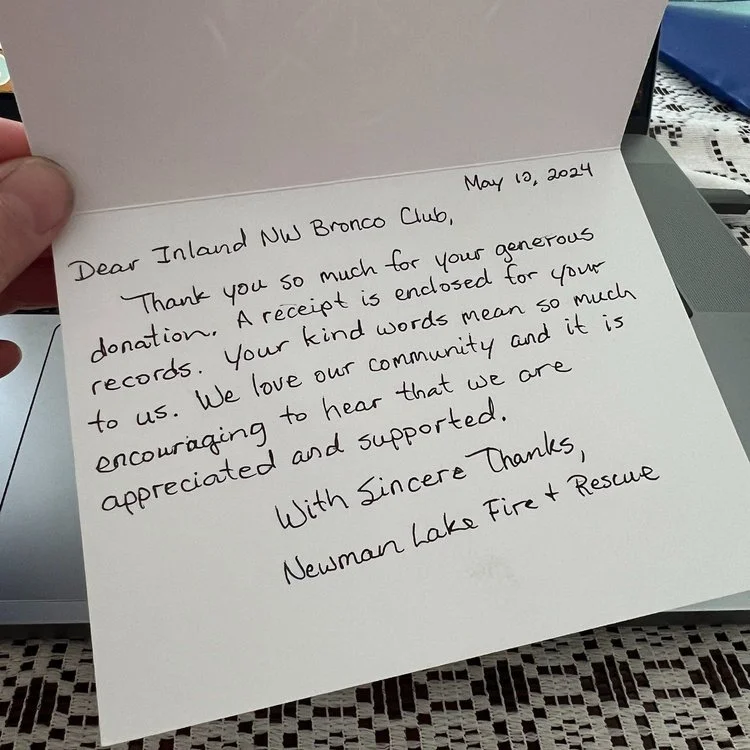 May 10, 2024
Dear Inland NW Bronco Club,
Thank you so much for your generous
donation. A receipt is enclosed for your
records. Your kind words mean so much
to us. We love our community and it is
encouraging to hear that we are
appreciated and supported.
With Sincere Thanks,
Newman Lake Fire + Rescue